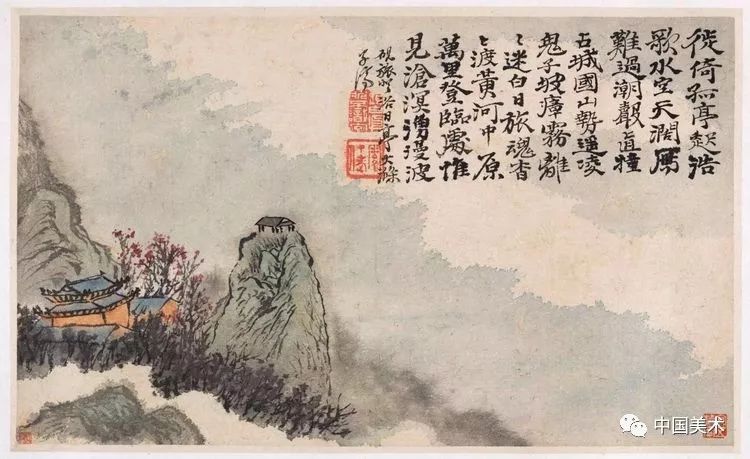 徙倚孤亭起浩
歌水空天濶雁
難過潮聲直撞
古城國山勢遥凌
鬼子坡瘴霧離
〻迷白日旅魂杳
〻渡黃河中原
萬里登臨處惟
見滄溟漫波
硯旅登浴日亭大滌
子濟
中国美术